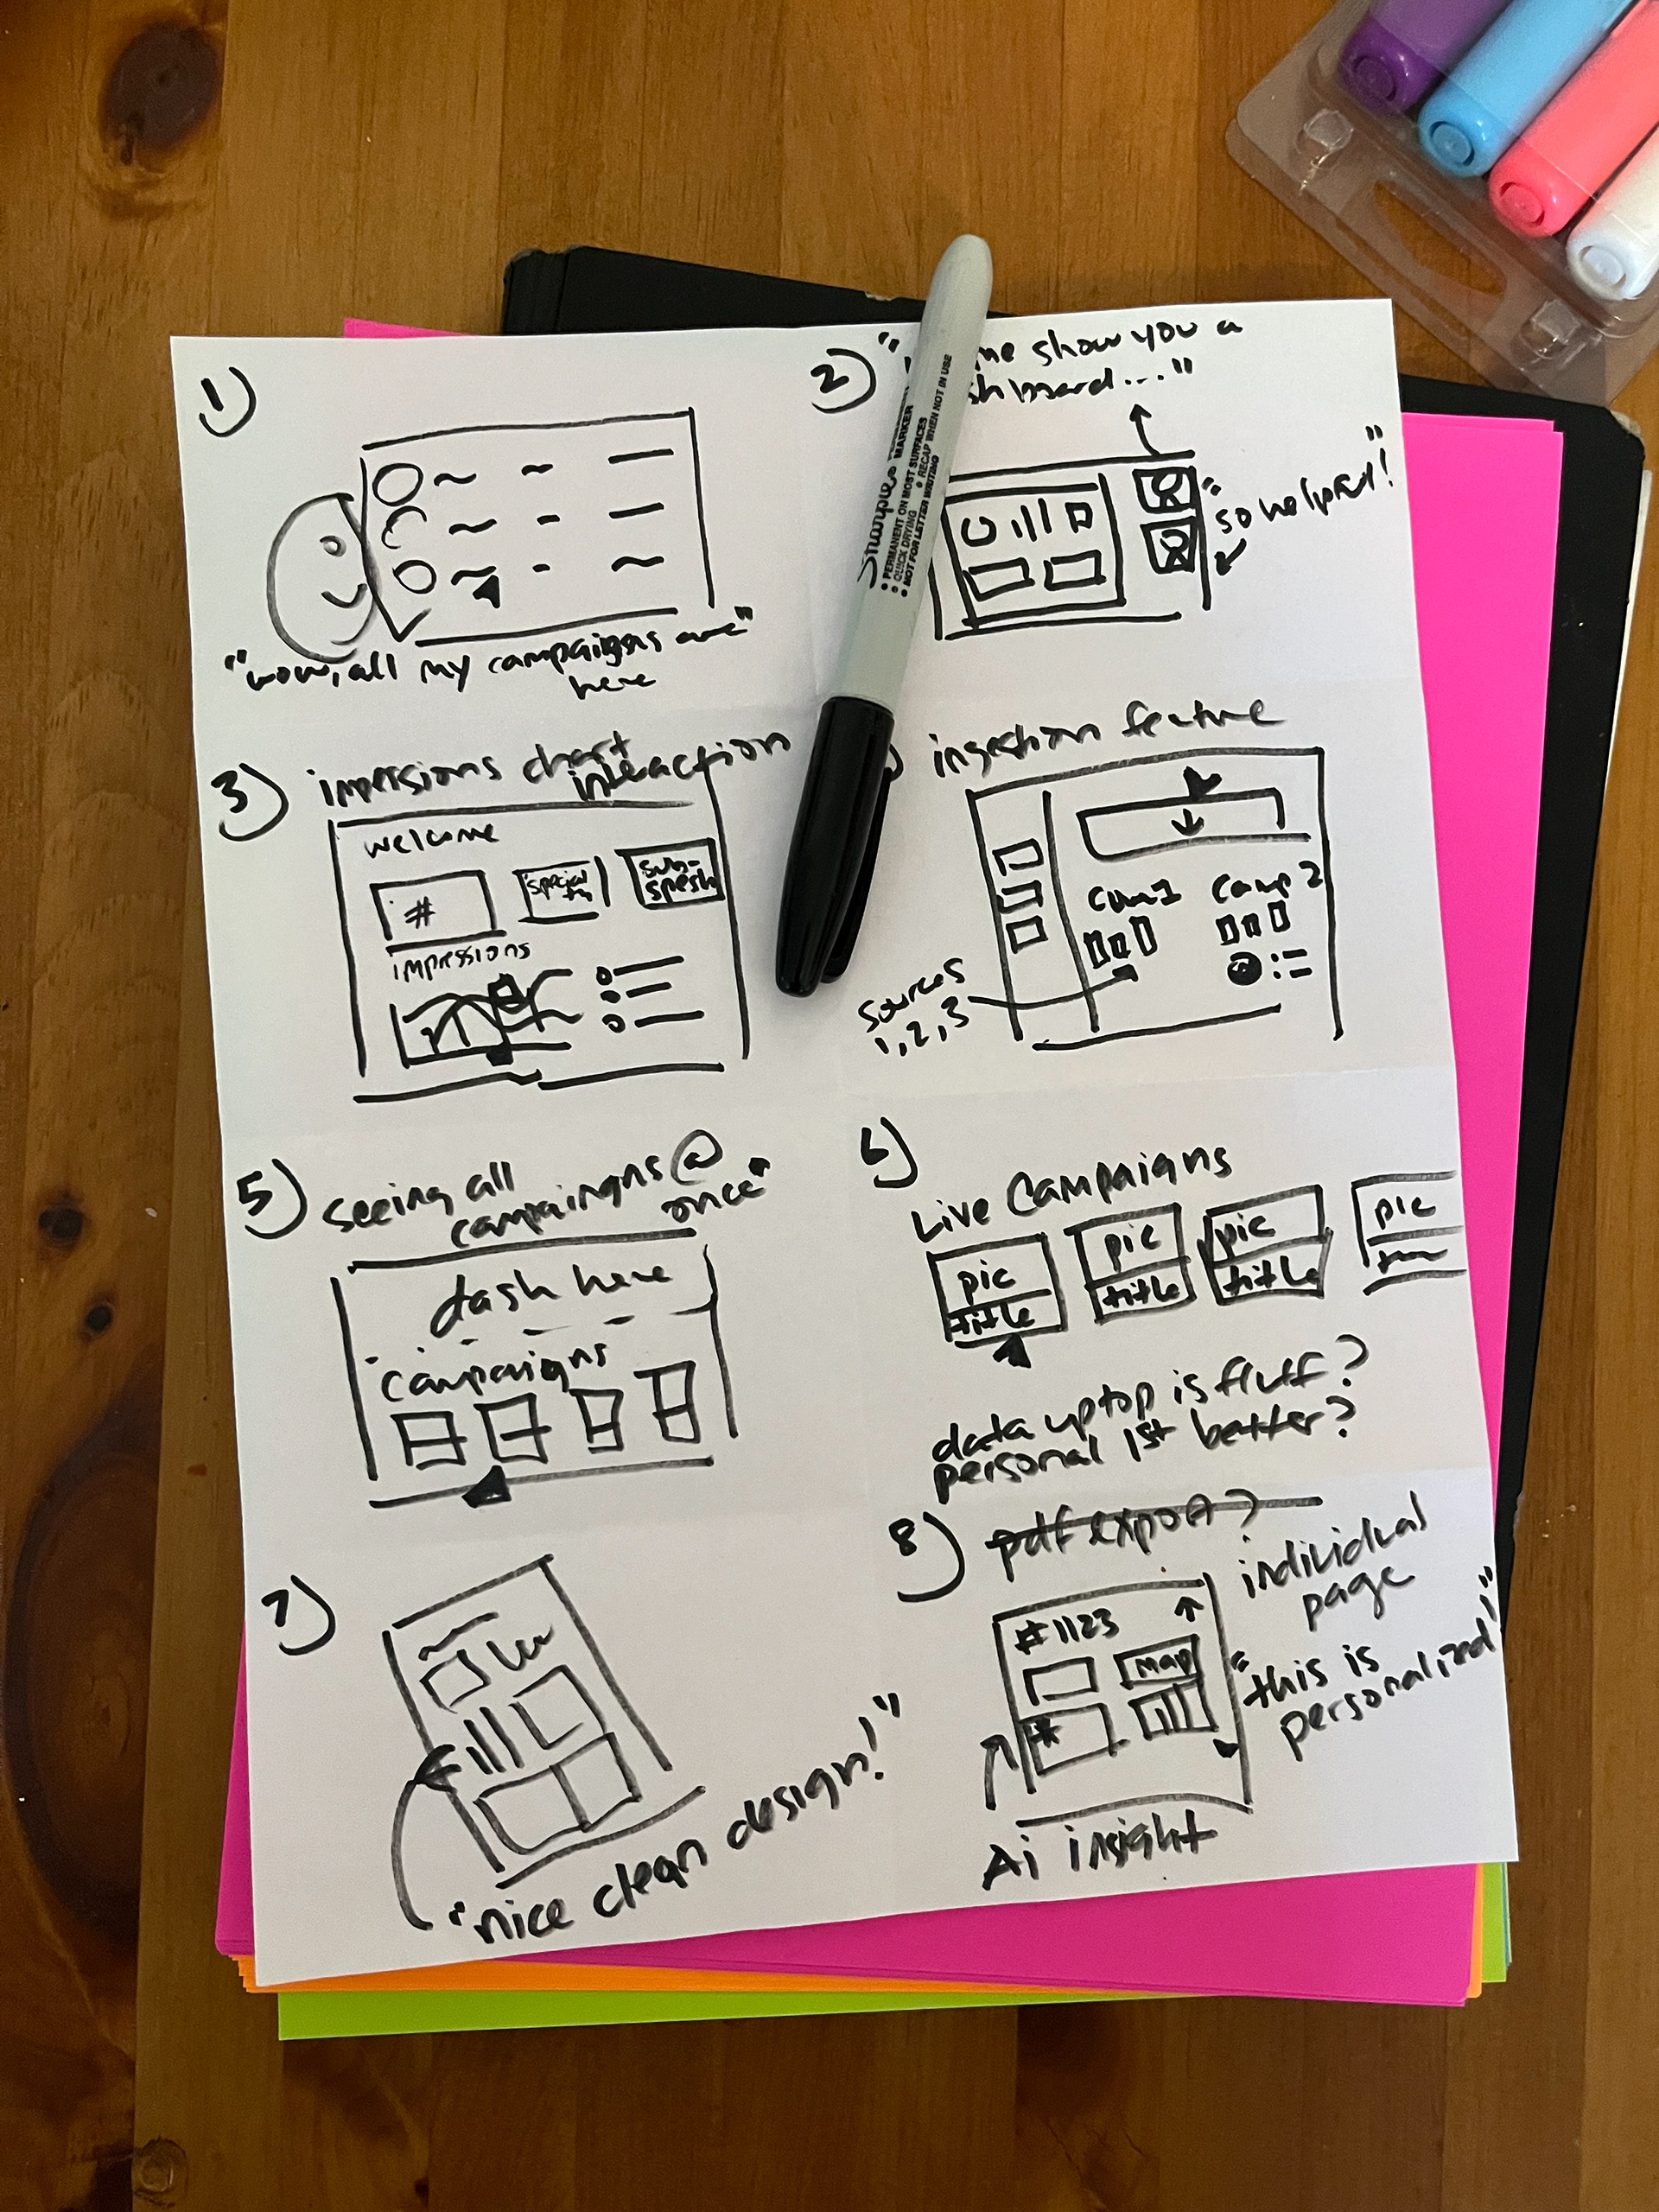 1)
"wow, all my campaigns are"
here
2) "
me show you a
shboard..."
"so helpful!"
Sharpie MARKER
• PERMANENT ON MOST SURFACES
• QUICK DRYING • RECAP WHEN NOT IN USE
• NOT FOR LETTER WRITING
3) impressions chart
interaction
welcome
#
special
ty
sub-
spesh
impressions
) ingestion feature
Camp 2
sources
1, 2, 3
5) seeing all
campaingns @
once"
dash here
campaigns
6)
Live Campaigns
pic
title
pic
title
pic
title
pic
data up top is fluff?
personal 1st better?
7)
"nice clean design!"
8) pdf export?
individual
page
#1123
map
*
"this is
personalized!"
Ai insight